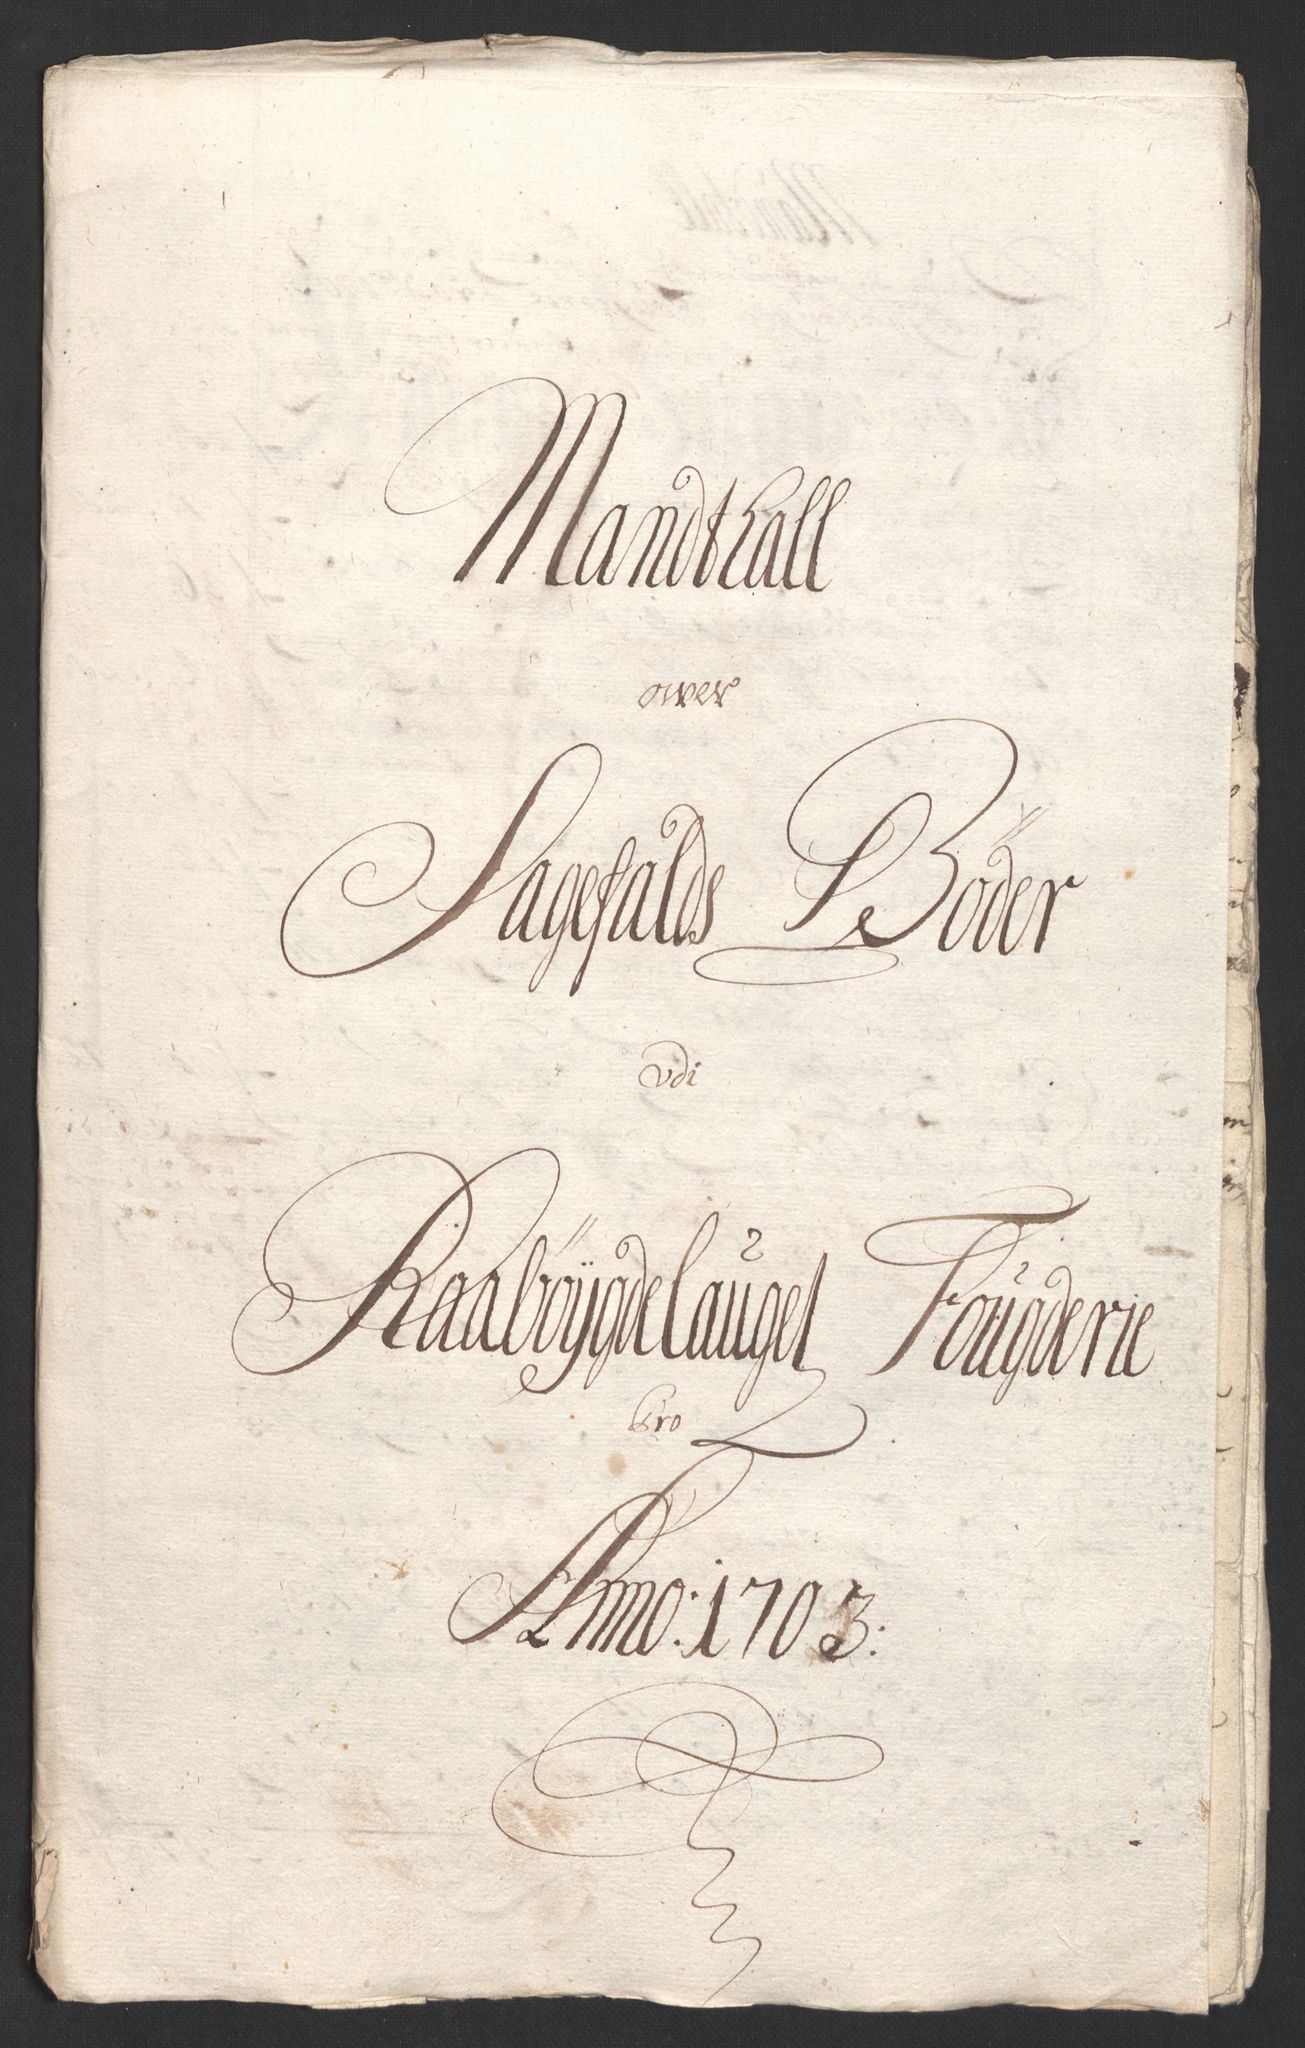 Mandthall
over
Sagefalds Böder
udi
Raaböÿgdelauget Fougderie
pro
Anno: 1703: